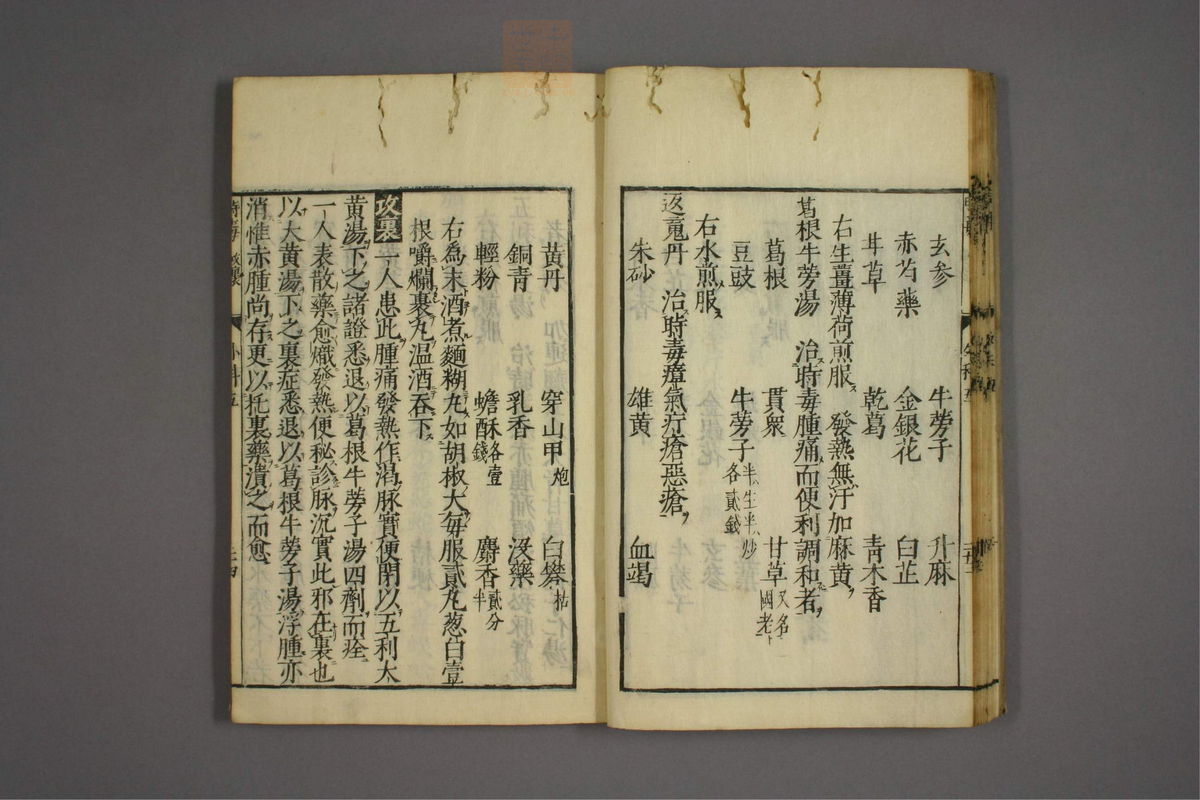 玄参　牛蒡子　升麻
赤芍藥　金銀花　白芷
甘草　乾葛　青木香
右生薑薄荷煎服ス　發熱無汗加麻黄ヲ
葛根牛蒡湯　治時毒腫痛而便利調和者ヲ
葛根　貫衆　甘草又名國老ト
豆豉　牛蒡子半ハ生半ハ炒各貳錢
右水煎服ス
返䰟丹　治時毒瘴氣疔瘡惡瘡ヲ
朱砂　雄黄　血竭
黄丹　穿山甲炮　白礬枯
銅青　乳香　没藥
輕粉　蟾酥各壹錢　麝香貳分半
右為末酒煮麵糊丸如胡椒大毎服貳丸葱白壹
根嚼爛裹丸温酒吞下ス
攻裏　一人患此腫痛發熱作渇脉實便閉以五利大
黄湯下之諸證悉退以葛根牛蒡子湯四劑而痊
一人表散藥愈熾發熱便秘診脉沉實此邪在裏也
以大黄湯下之裏症悉退以葛根牛蒡子湯浮腫亦
消惟赤腫尚存更以托裏藥潰之而愈